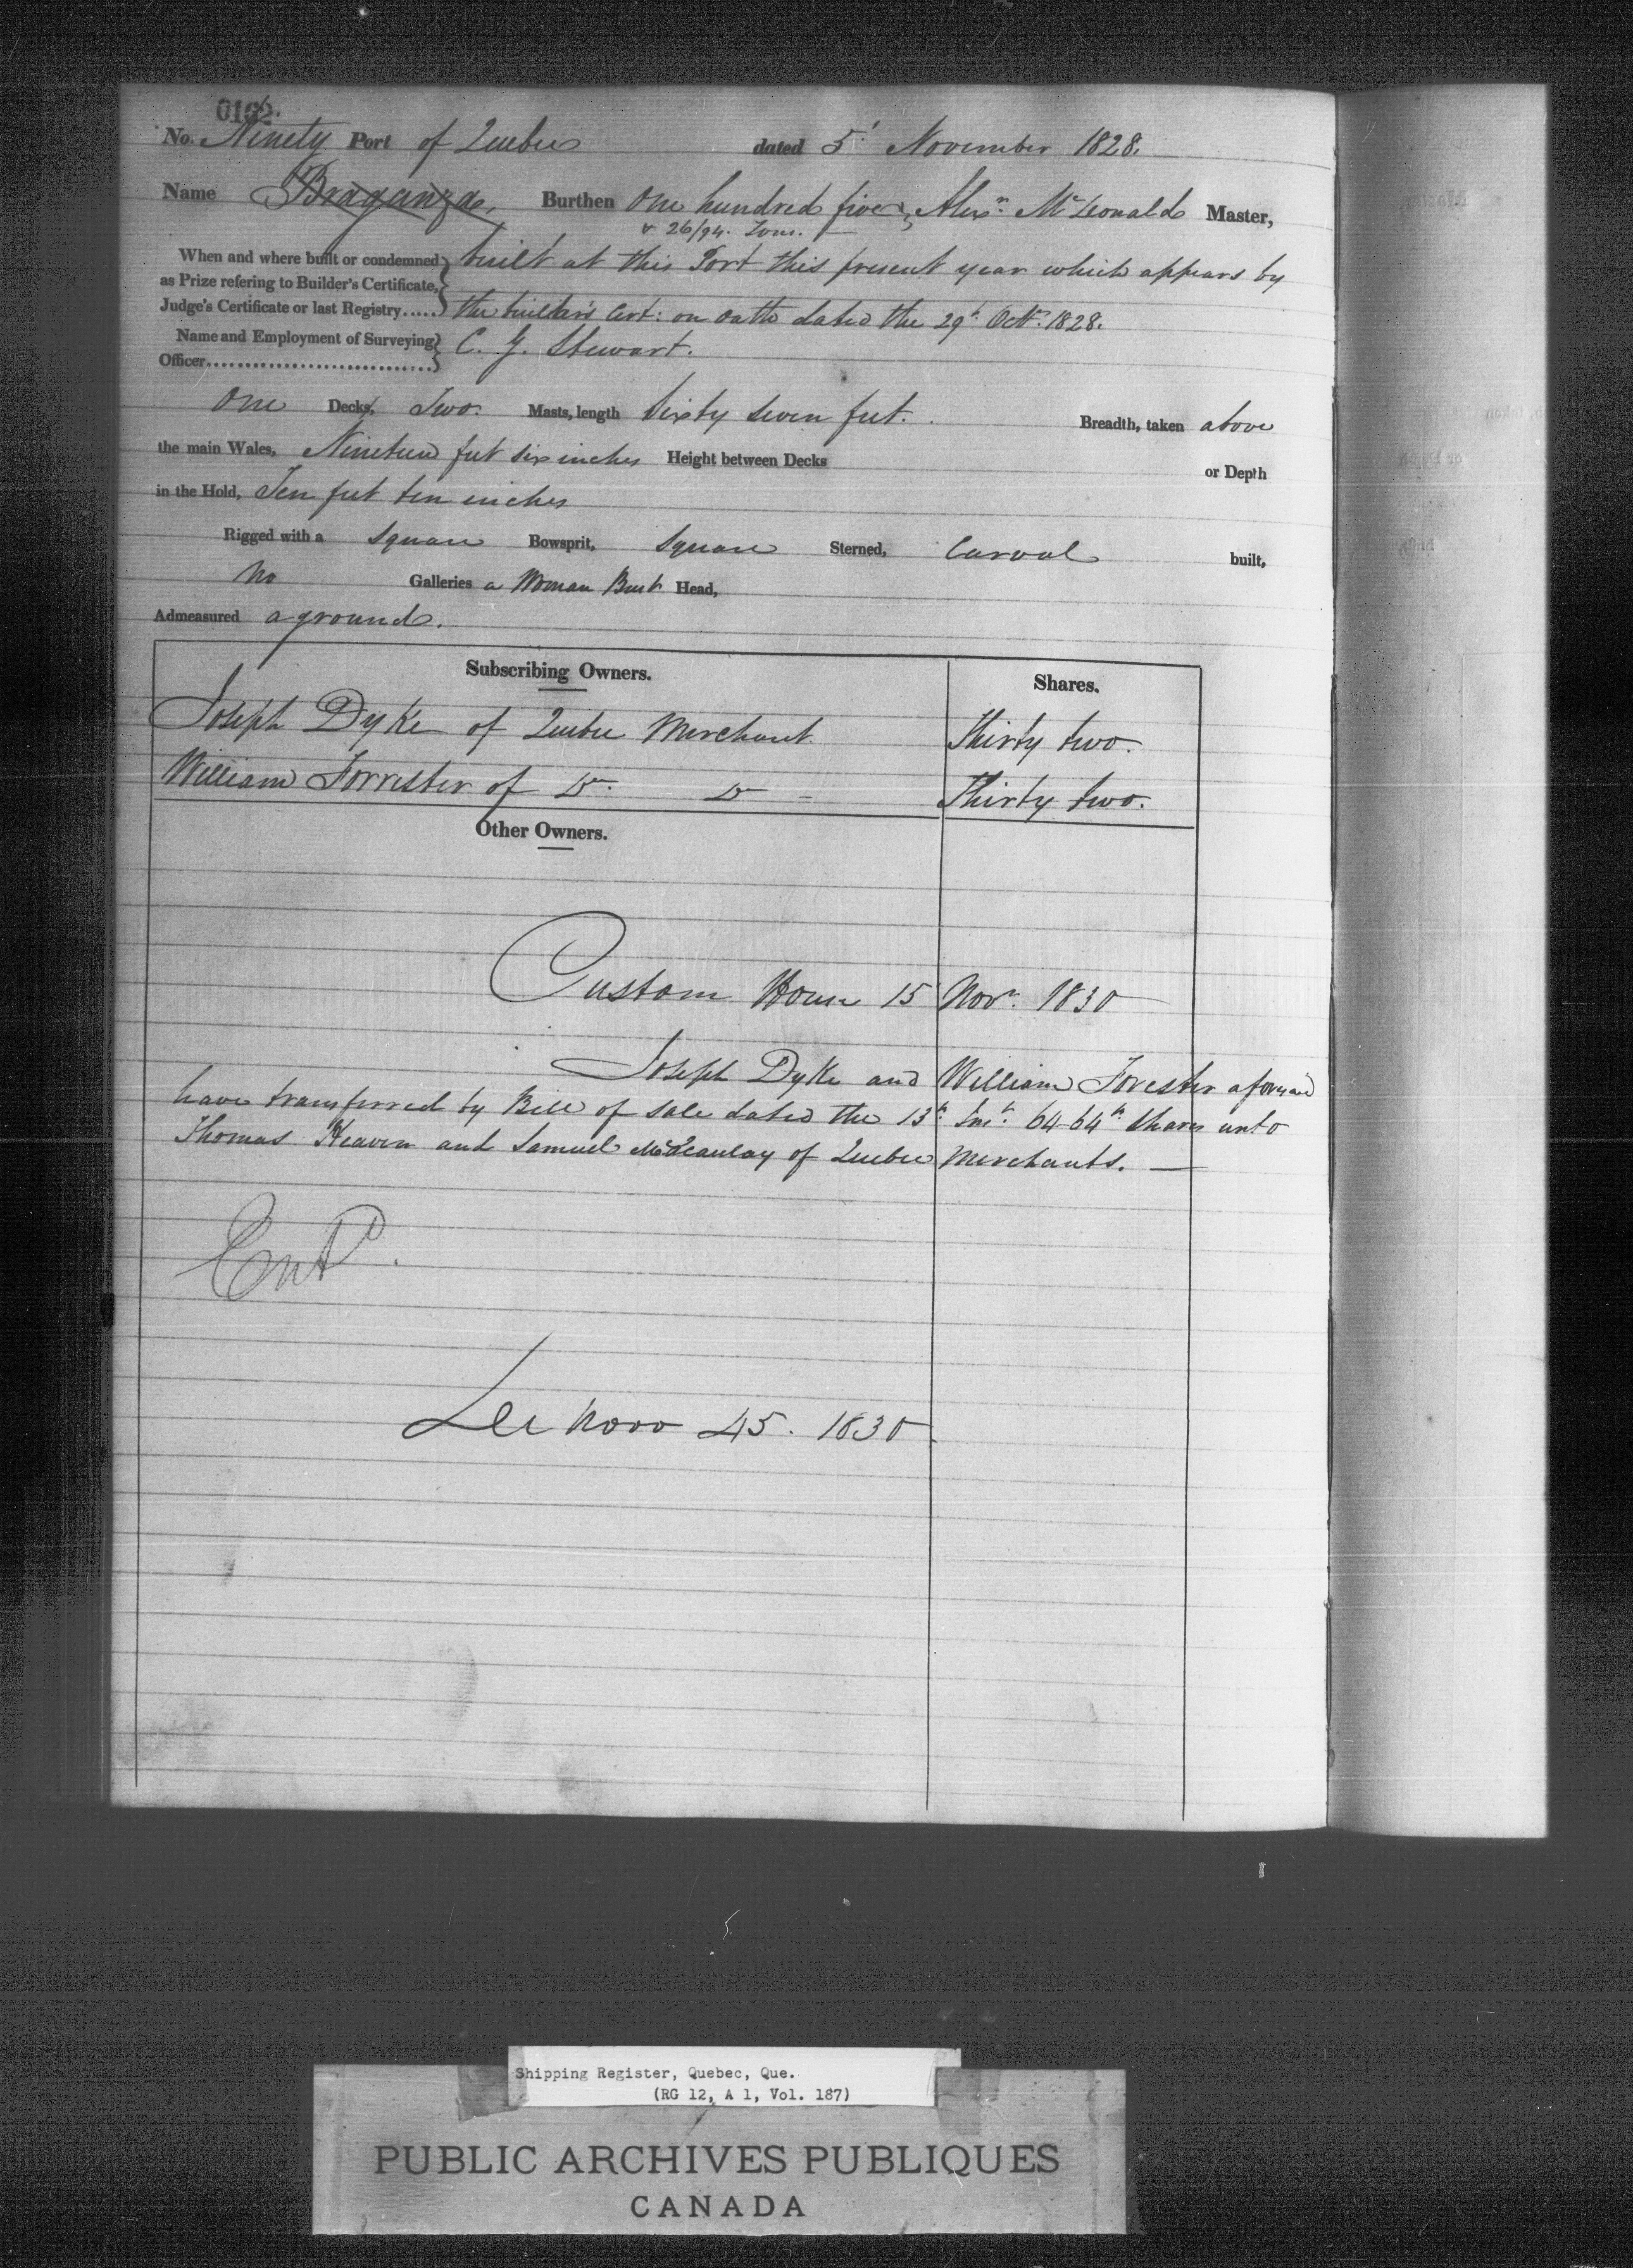 0192.
No. Ninety Port of Quebec dated 5t November 1828.
Name Braganza, Burthen One hundred five, Alexr. McDonald Master,
& 26/94. Tons.
When and where built or condemned as Prize refering to Builder's Certificate, Judge's Certificate or last Registry..... built at this Port this present year which appears by
the builder's Cert: on oath dated the 29t. Octr. 1828.
Name and Employment of Surveying Officer.............................. C. G. Stewart.
One Decks, Two. Masts, length Sixty seven feet. Breadth, taken above
the main Wales, Nineteen feet six inches Height between Decks or Depth
in the Hold, Ten feet ten inches
Rigged with a Square Bowsprit, Square Sterned, Carvel built,
No Galleries a Woman Bust Head,
Admeasured aground.
Subscribing Owners. Shares.
Joseph Dyke of Quebec Merchant. Thirty two.
William Forrester of Do. Do - Thirty two.
Other Owners.
Custom House 15 Novr. 1830
Joseph Dyke and William Forester aforesaid
have transferred by Bill of Sale dated the 13th. Inst. 64-64th Shares unto
Thomas Heaven and Samuel McCaulay of Quebec Merchants. —
Entd.
De Novo 45. 1830.
Shipping Register, Quebec, Que.
(RG 12, A 1, Vol. 187)
PUBLIC ARCHIVES PUBLIQUES
CANADA